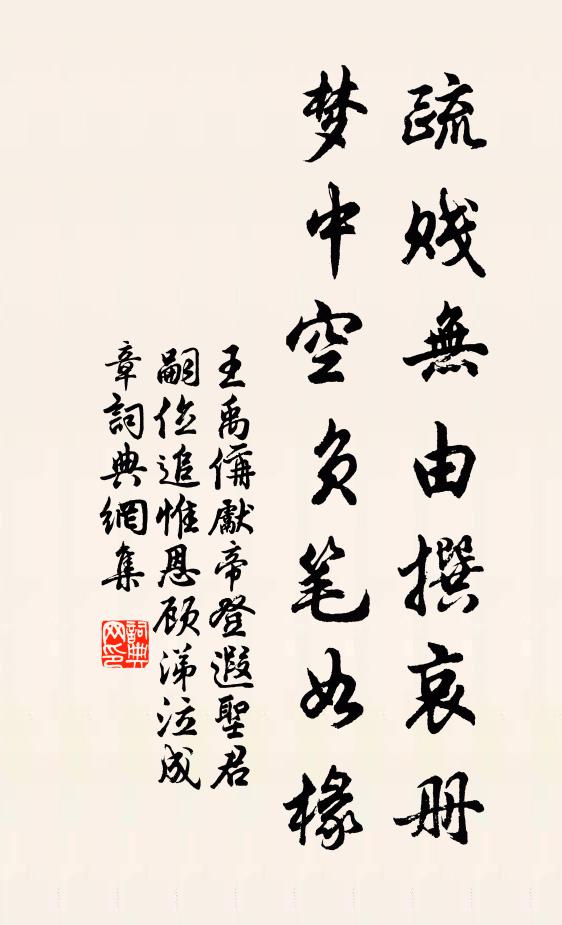 疏贱無由撰哀册
梦中空负笔如椽
王禹偁獻帝登遐聖君
嗣位追惟恩顾涕泣成
章詞典網集
詞典网印